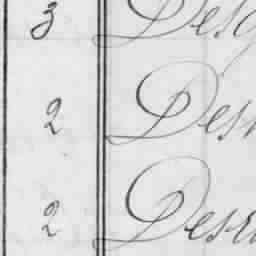 3 Desg
2 Des
2 Desr